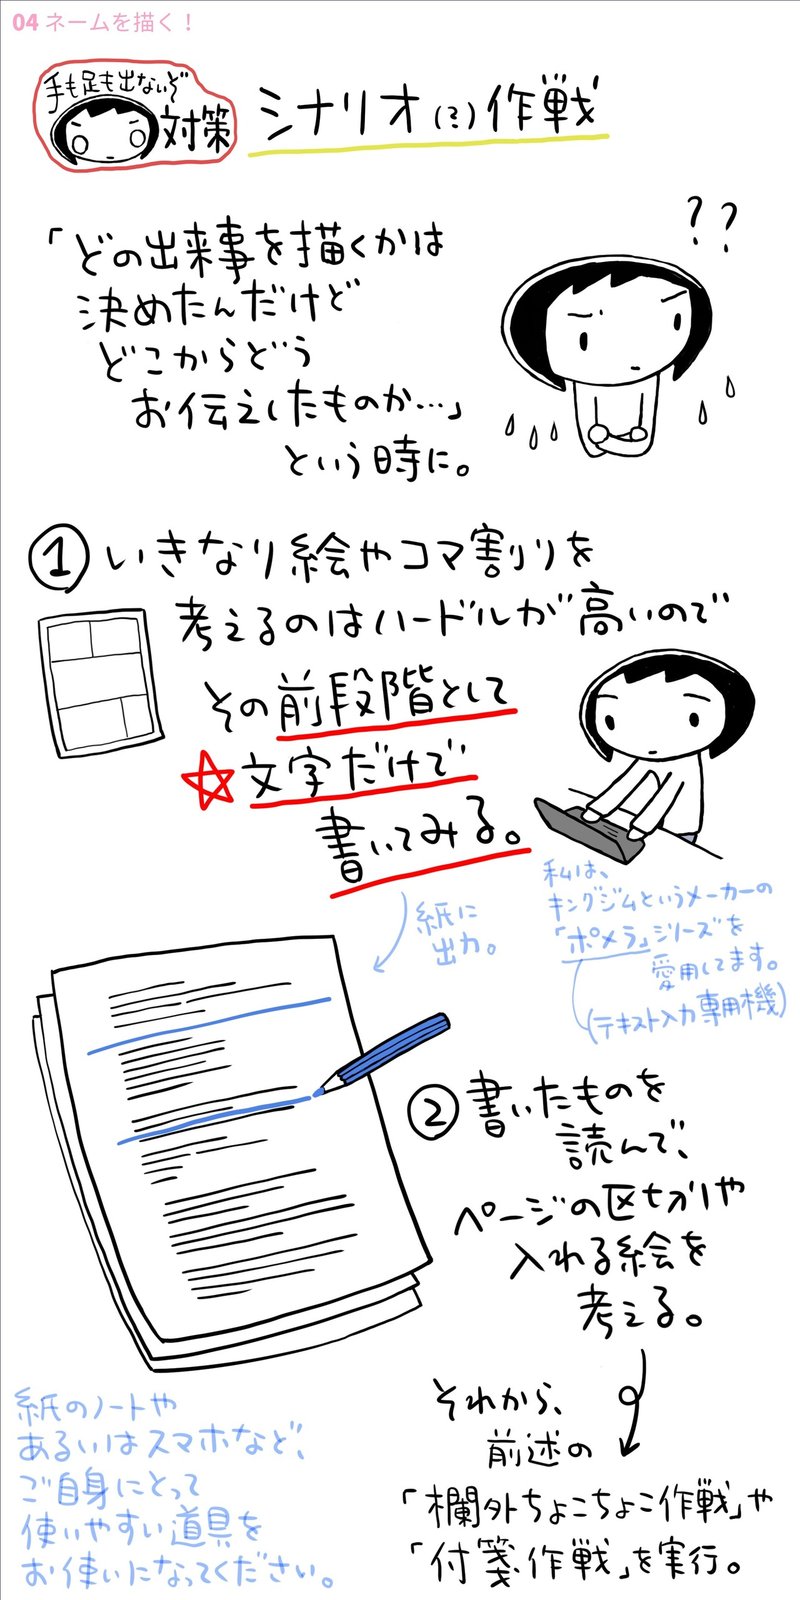 04 ネームを描く！
手も足も出ないぞ
対策
シナリオ(?)作戦
??
「どの出来事を描くかは
決めたんだけど
どこからどう
お伝えしたものか…」
という時に。
① いきなり絵やコマ割りを
考えるのはハードルが高いので
その前段階として
☆文字だけで
書いてみる。
私は、
キングジムというメーカーの
「ポメラ」シリーズを
愛用してます。
(テキスト入力専用機)
紙に
出力。
② 書いたものを
読んで、
ページの区切りや
入れる絵を
考える。
それから、
前述の
「欄外ちょこちょこ作戦」や
「付箋作戦」を実行。
紙のノートや
あるいはスマホなど、
ご自身にとって
使いやすい道具を
お使いになってください。